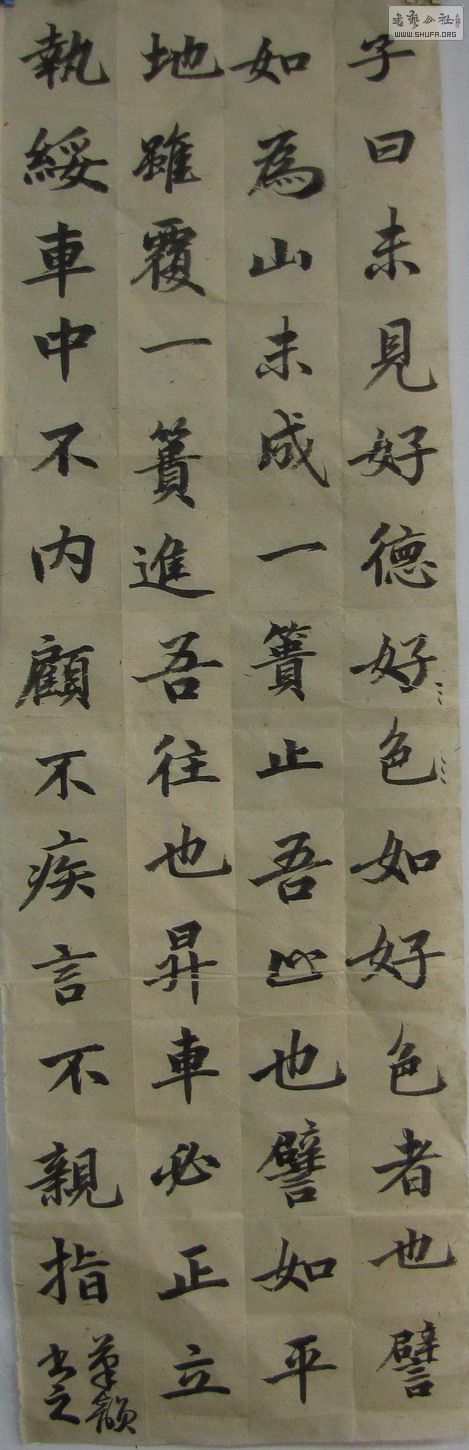 子曰未見好德好色如好色者也譬
如為山未成一簣止吾止也譬如平
地雖覆一簣進吾往也昇車必正立
執綏車中不内顧不疾言不親指
書之
WWW.SHUFA.ORG